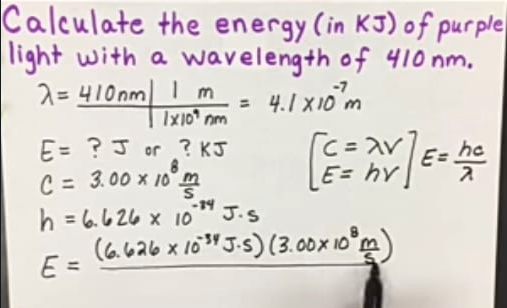 Calculate the energy (in KJ) of purple
light with a wavelength of 410 nm.
λ = 410nm | 1 m / 1x10⁹ nm = 4.1 x10⁻⁷ m
E = ? J or ? KJ
C = 3.00 x 10⁸ m/s
[C = λν
E = hν] E = hc/λ
h = 6.626 x 10⁻³⁴ J·s
E = (6.626 x 10⁻³⁴ J·s)(3.00x10⁸ m/s)